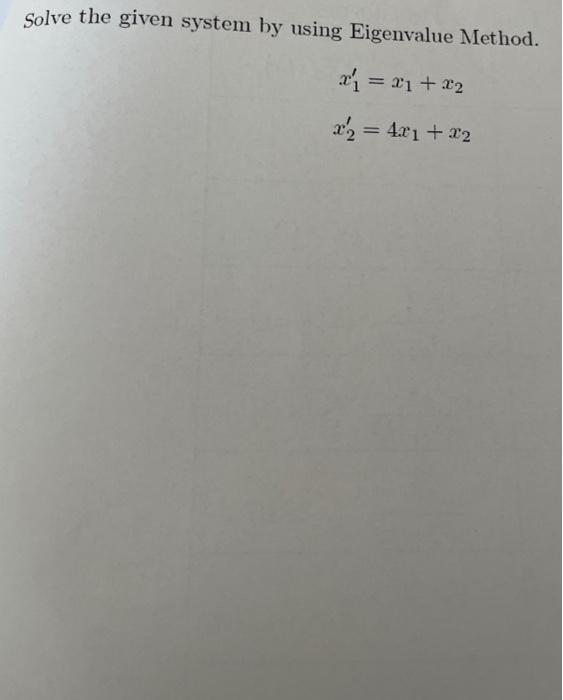 Solve the given system by using Eigenvalue Method.
x′₁ = x₁ + x₂
x′₂ = 4x₁ + x₂